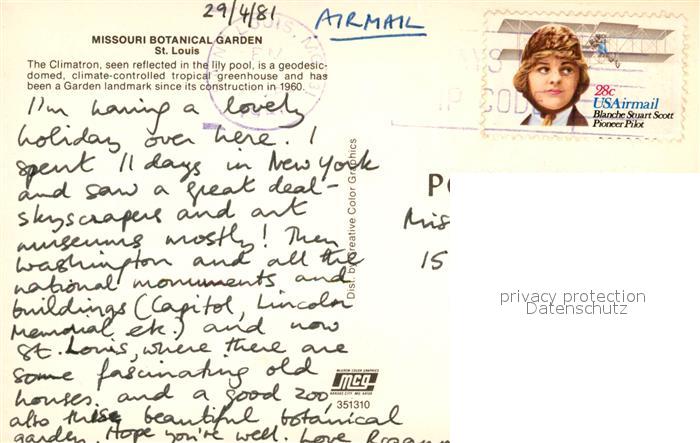 29/4/81
AIRMAIL
MISSOURI BOTANICAL GARDEN
St. Louis
The Climatron, seen reflected in the lily pool, is a geodesic-
domed, climate-controlled tropical greenhouse and has
been a Garden landmark since its construction in 1960.
28c
USAirmail
Blanche Stuart Scott
Pioneer Pilot
I'm having a lovely
holiday over here. I
spent 11 days in New York
and saw a great deal -
skyscrapers and art
museums mostly! Then
Washington and all the
national monuments and
buildings (Capitol, Lincoln
Memorial etc.) and now
St. Louis, where there are
some fascinating old
houses and a good zoo,
also this beautiful botanical
garden. Hope you're well. Love
Dist. by Creative Color Graphics
PO
Mis
15
privacy protection
Datenschutz
McGREW COLOR GRAPHICS
mcg
KANSAS CITY, MO. 64108
351310